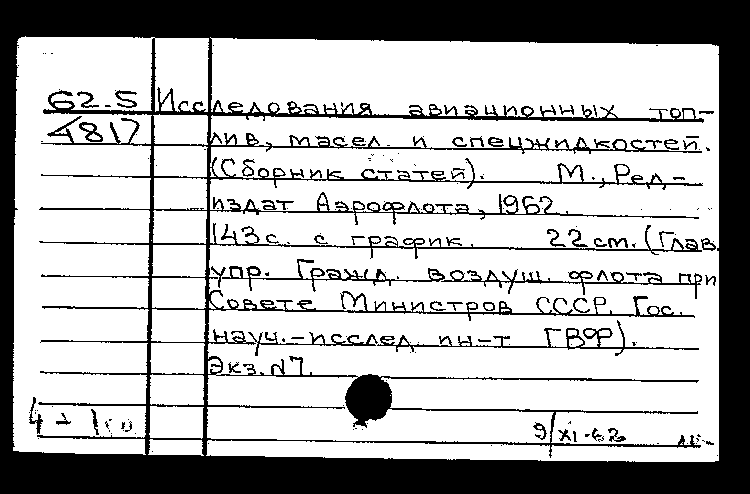 62.5 Исследования авиационных топ-
4817 лив, масел и спецжидкостей.
(Сборник статей). М., Ред.-
издат Аэрофлота, 1962.
143с. с график. 22 cm. (Глав.
упр. Гражд. воздуш. флота при
Совете Министров СССР. Гос.
науч.-исслед. ин-т ГВФ).
Экз. №7.
9/XI-62